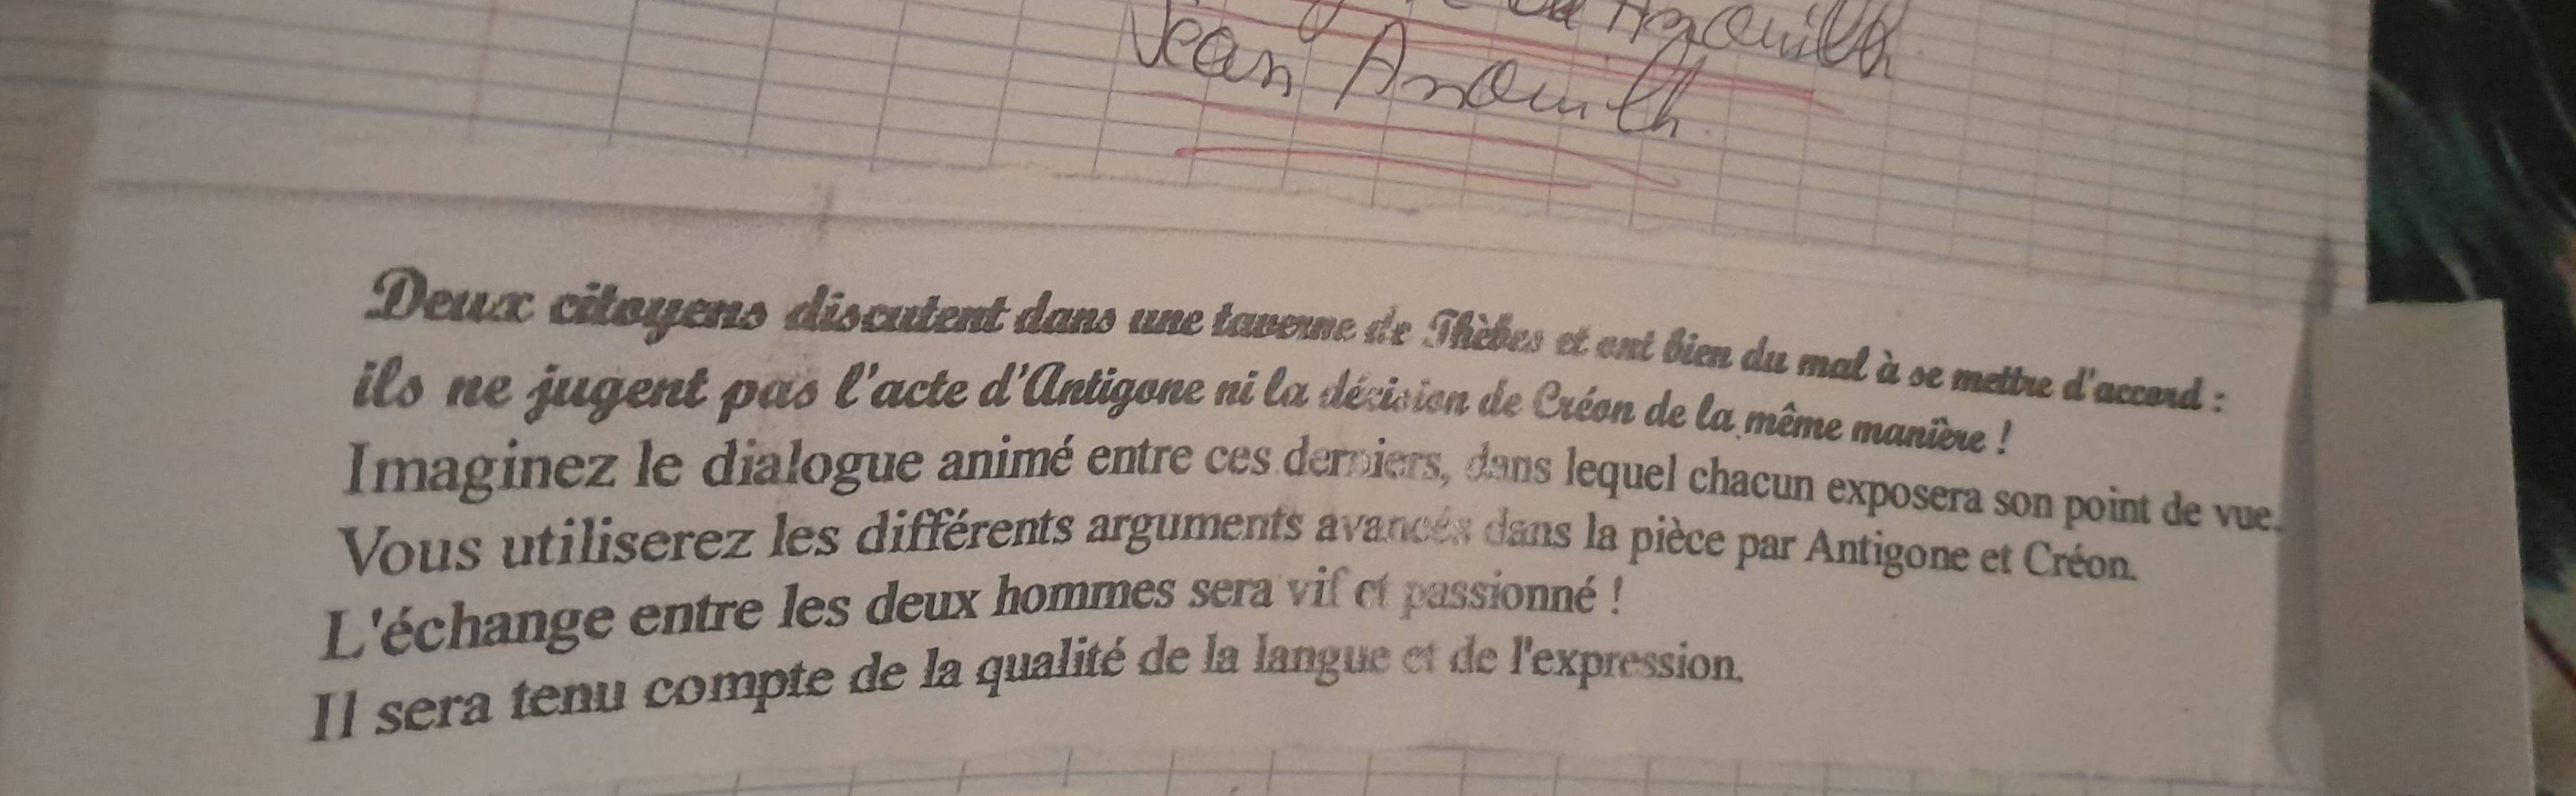 Anouilh
Jean Anouilh.
Deux citoyens discutent dans une taverne de Thèbes et ont bien du mal à se mettre d'accord :
ils ne jugent pas l'acte d'Antigone ni la décision de Créon de la même manière !
Imaginez le dialogue animé entre ces derniers, dans lequel chacun exposera son point de vue.
Vous utiliserez les différents arguments avancés dans la pièce par Antigone et Créon.
L'échange entre les deux hommes sera vif et passionné !
Il sera tenu compte de la qualité de la langue et de l'expression.